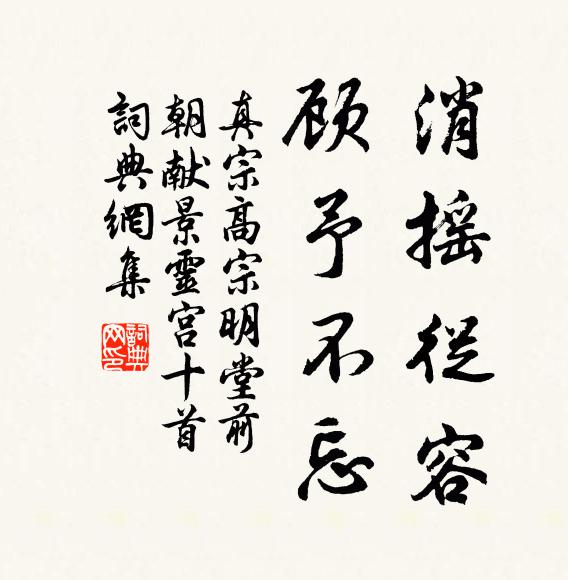 消摇從容
顾予不忘
真宗高宗明堂前
朝献景靈宫十首
詞典網集
詞典网印